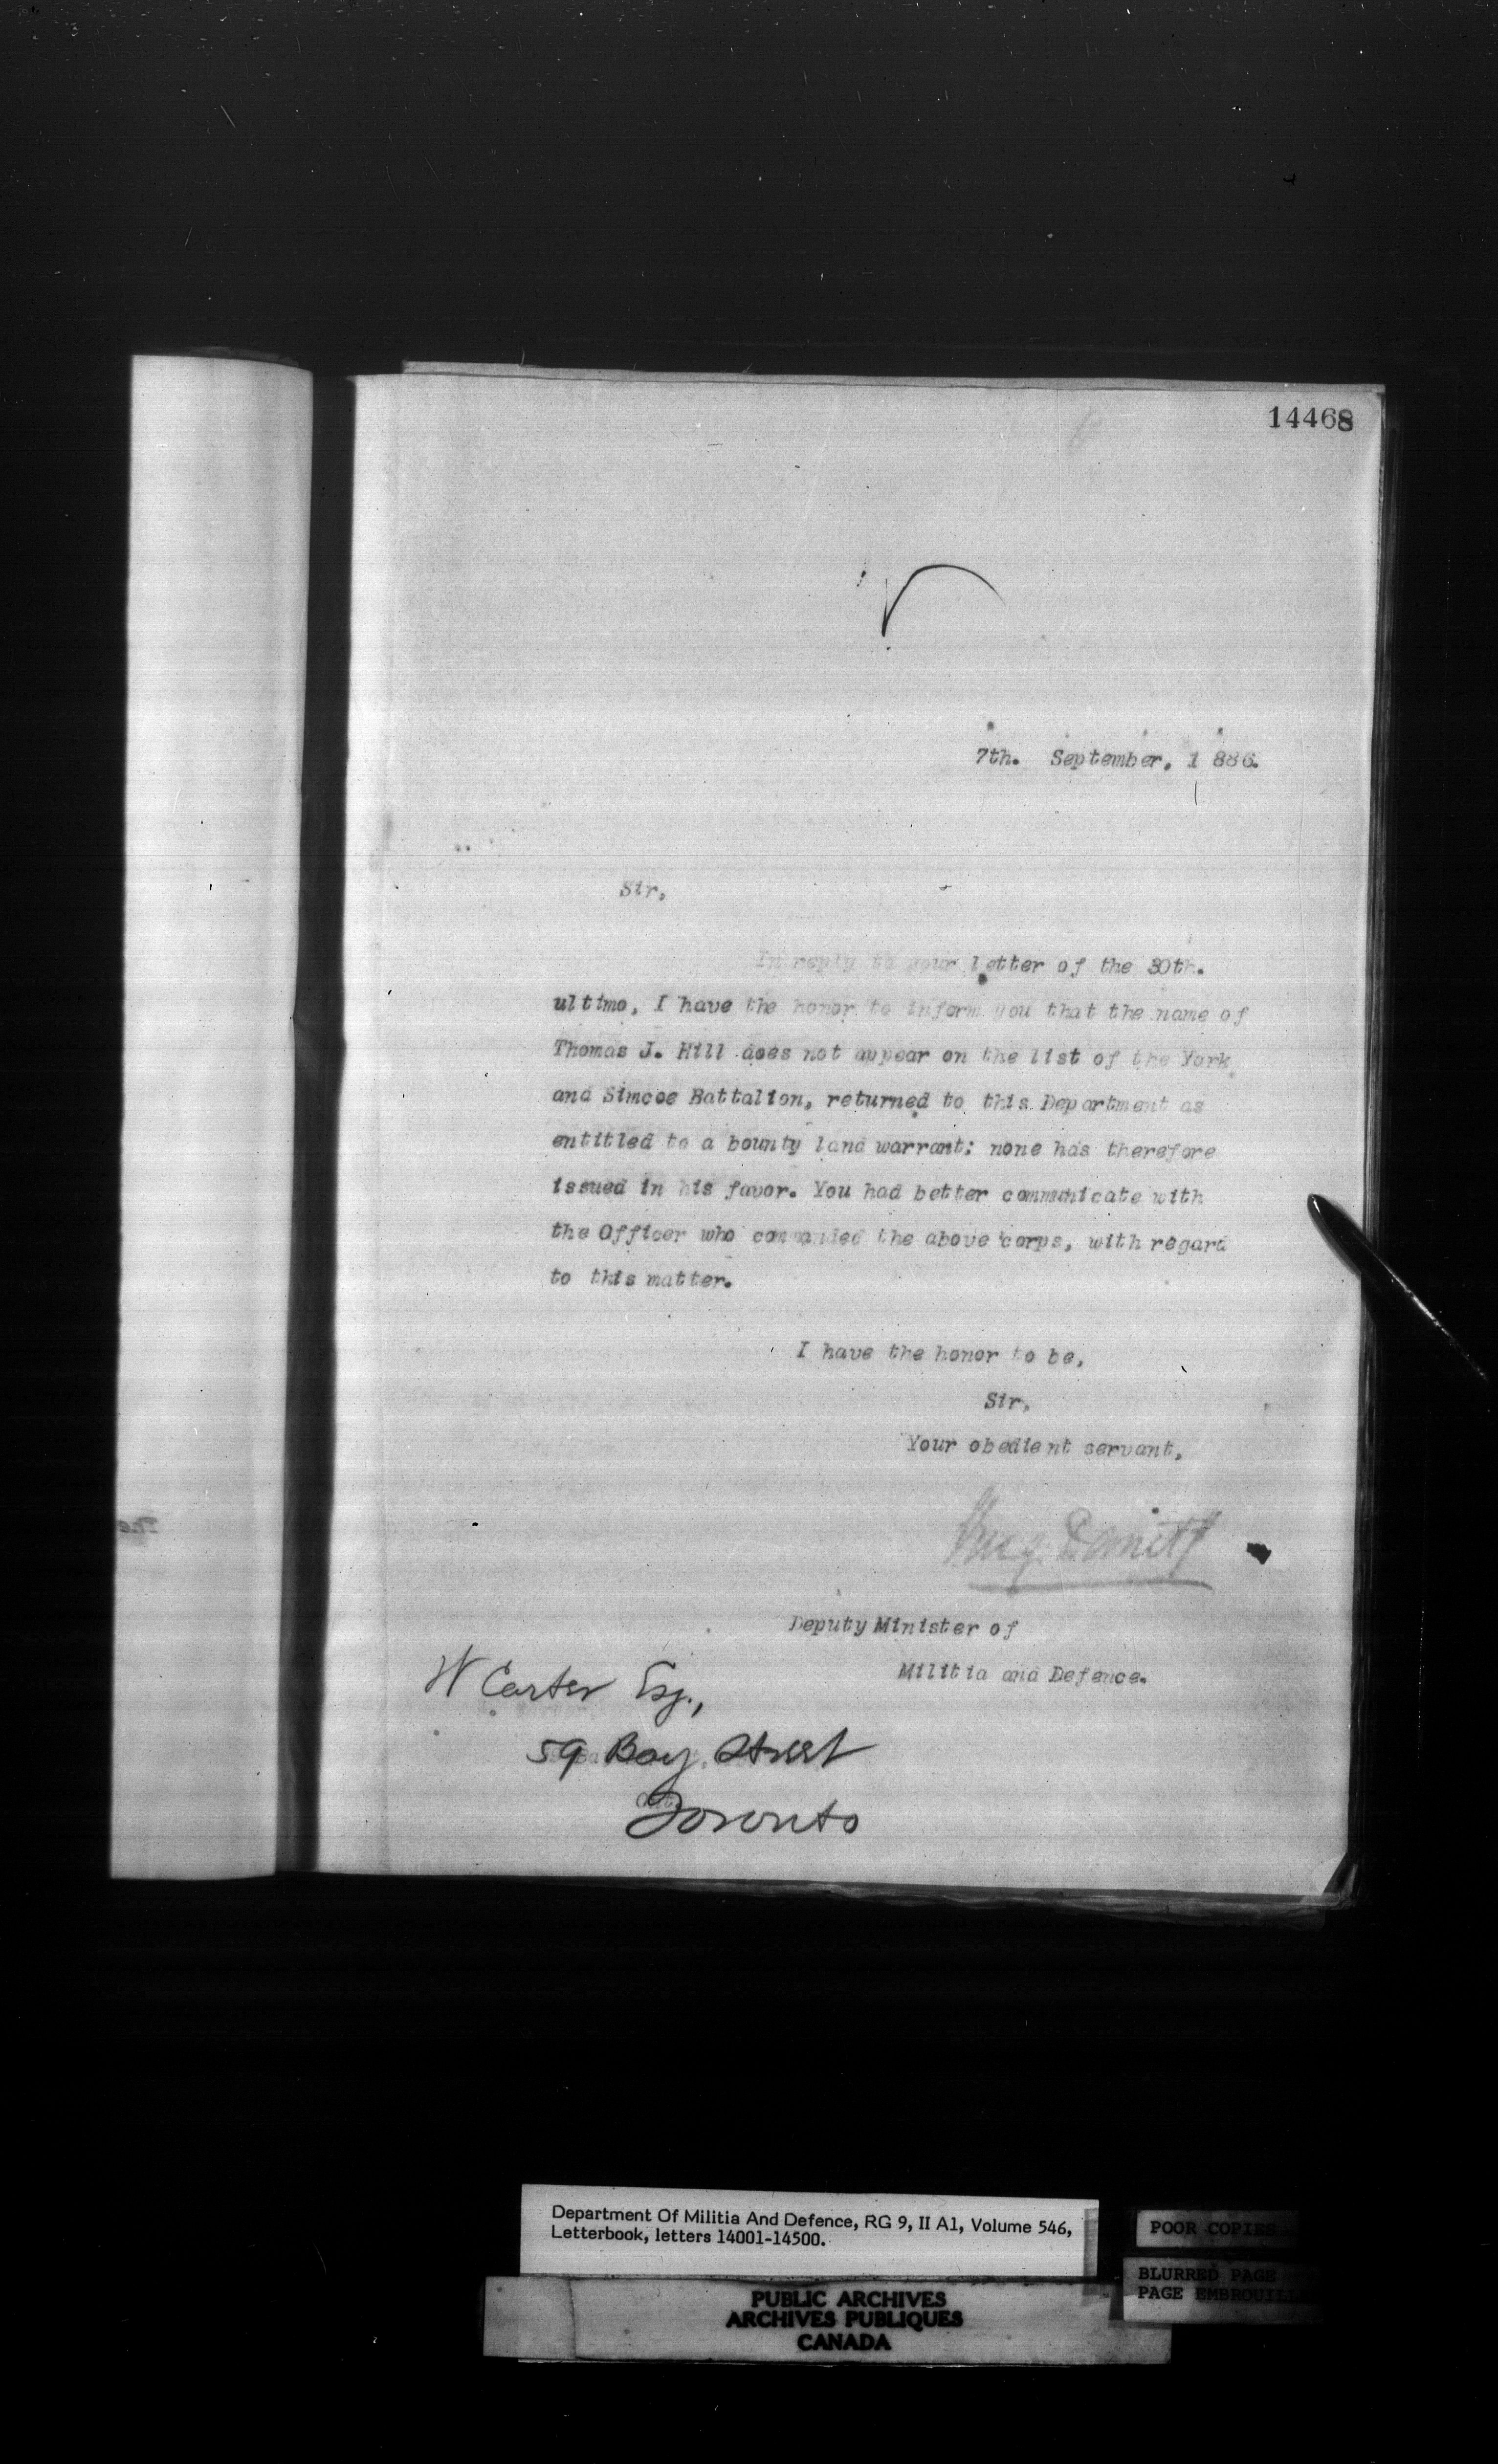 14468
7th. September, 1 886.
Sir,
In reply to your letter of the 30th.
ultimo, I have the honor to inform you that the name of
Thomas J. Hill does not appear on the list of the York
and Simcoe Battalion, returned to this Department as
entitled to a bounty land warrant: none has therefore
issued in his favor. You had better communicate with
the Officer who commanded the above corps, with regard
to this matter.
I have the honor to be,
Sir,
Your obedient servant,
Deputy Minister of
Militia and Defence.
W Carter Esq.,
59 Bay Street
Toronto
The
Department Of Militia And Defence, RG 9, II A1, Volume 546,
Letterbook, letters 14001-14500.
POOR COPIES
BLURRED PAGE
PAGE EMBROUILL
PUBLIC ARCHIVES
ARCHIVES PUBLIQUES
CANADA